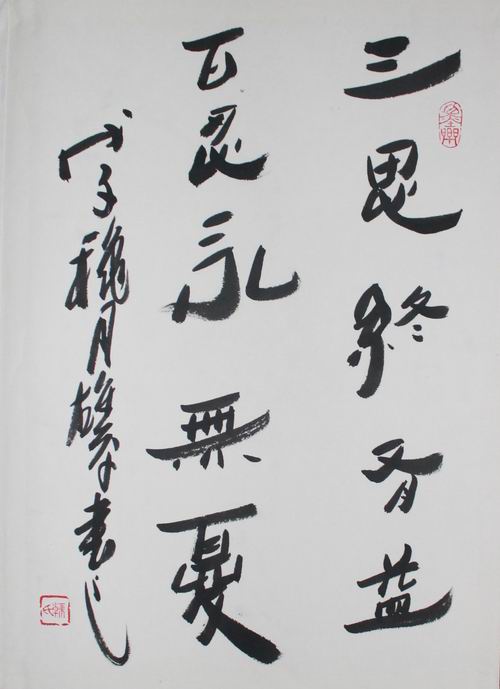 三思終有益
百忍永無憂
戊子穐月書之